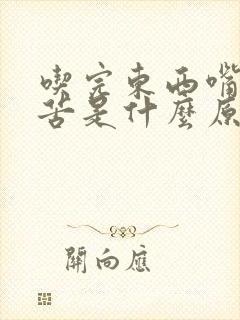 喫完東西嘴
苦是什麼原
開向應